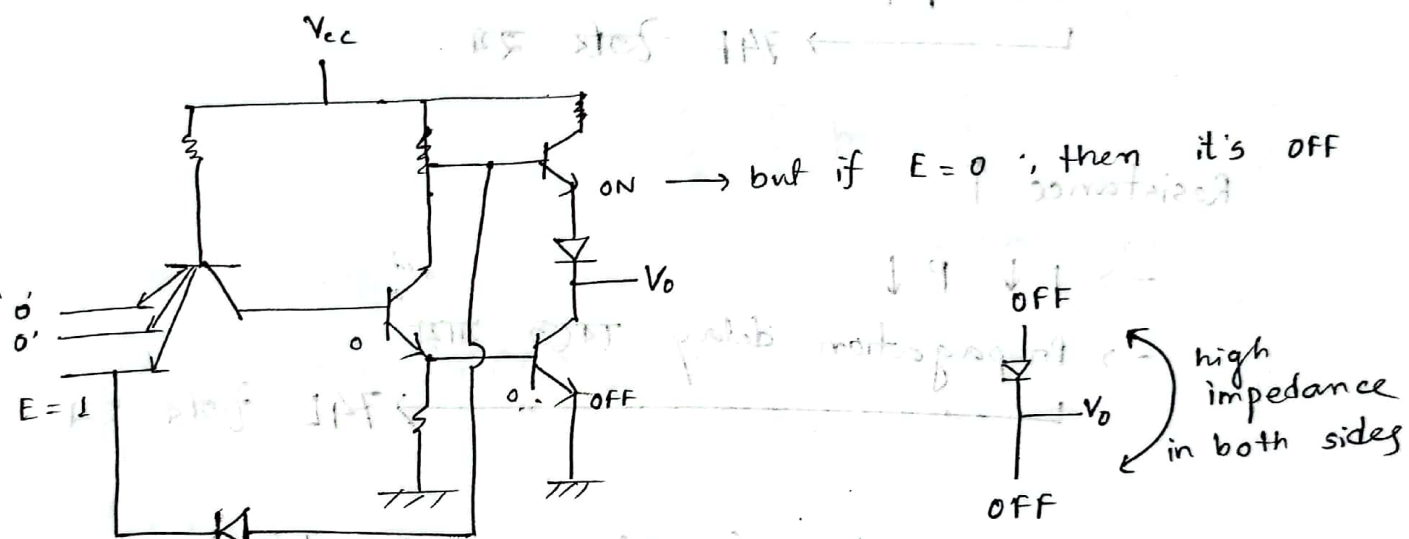 Vcc
ON → but if E = 0 ; then it's OFF
V0
'0'
0'
E = 1
0
0
OFF
OFF
V0
OFF
high
impedance
in both sides